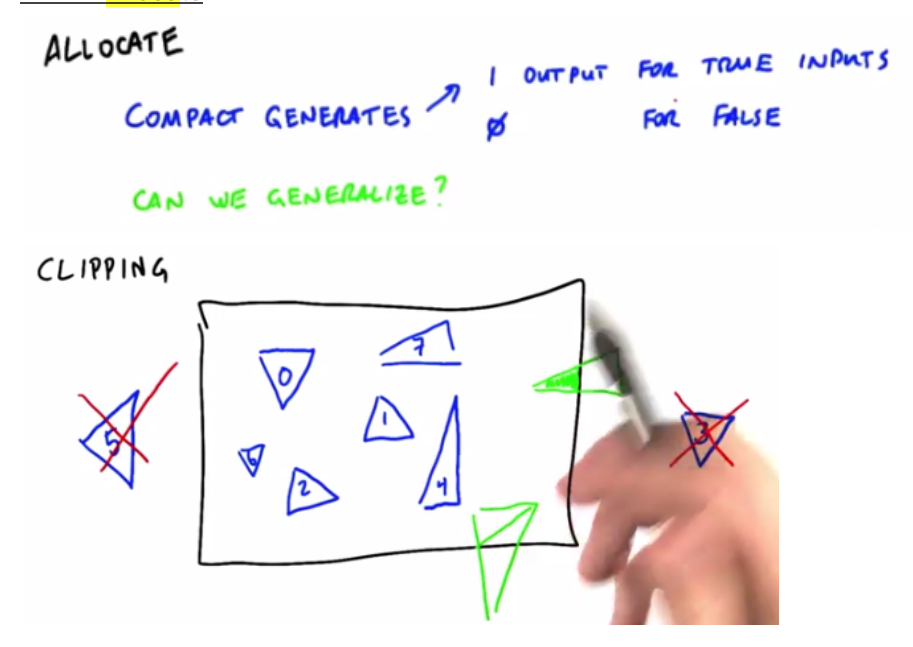 ALLOCATE
COMPACT GENERATES → 1 OUTPUT FOR TRUE INPUTS
0 FOR FALSE
CAN WE GENERALIZE?
CLIPPING
7
0
1
5
3
6
2
4